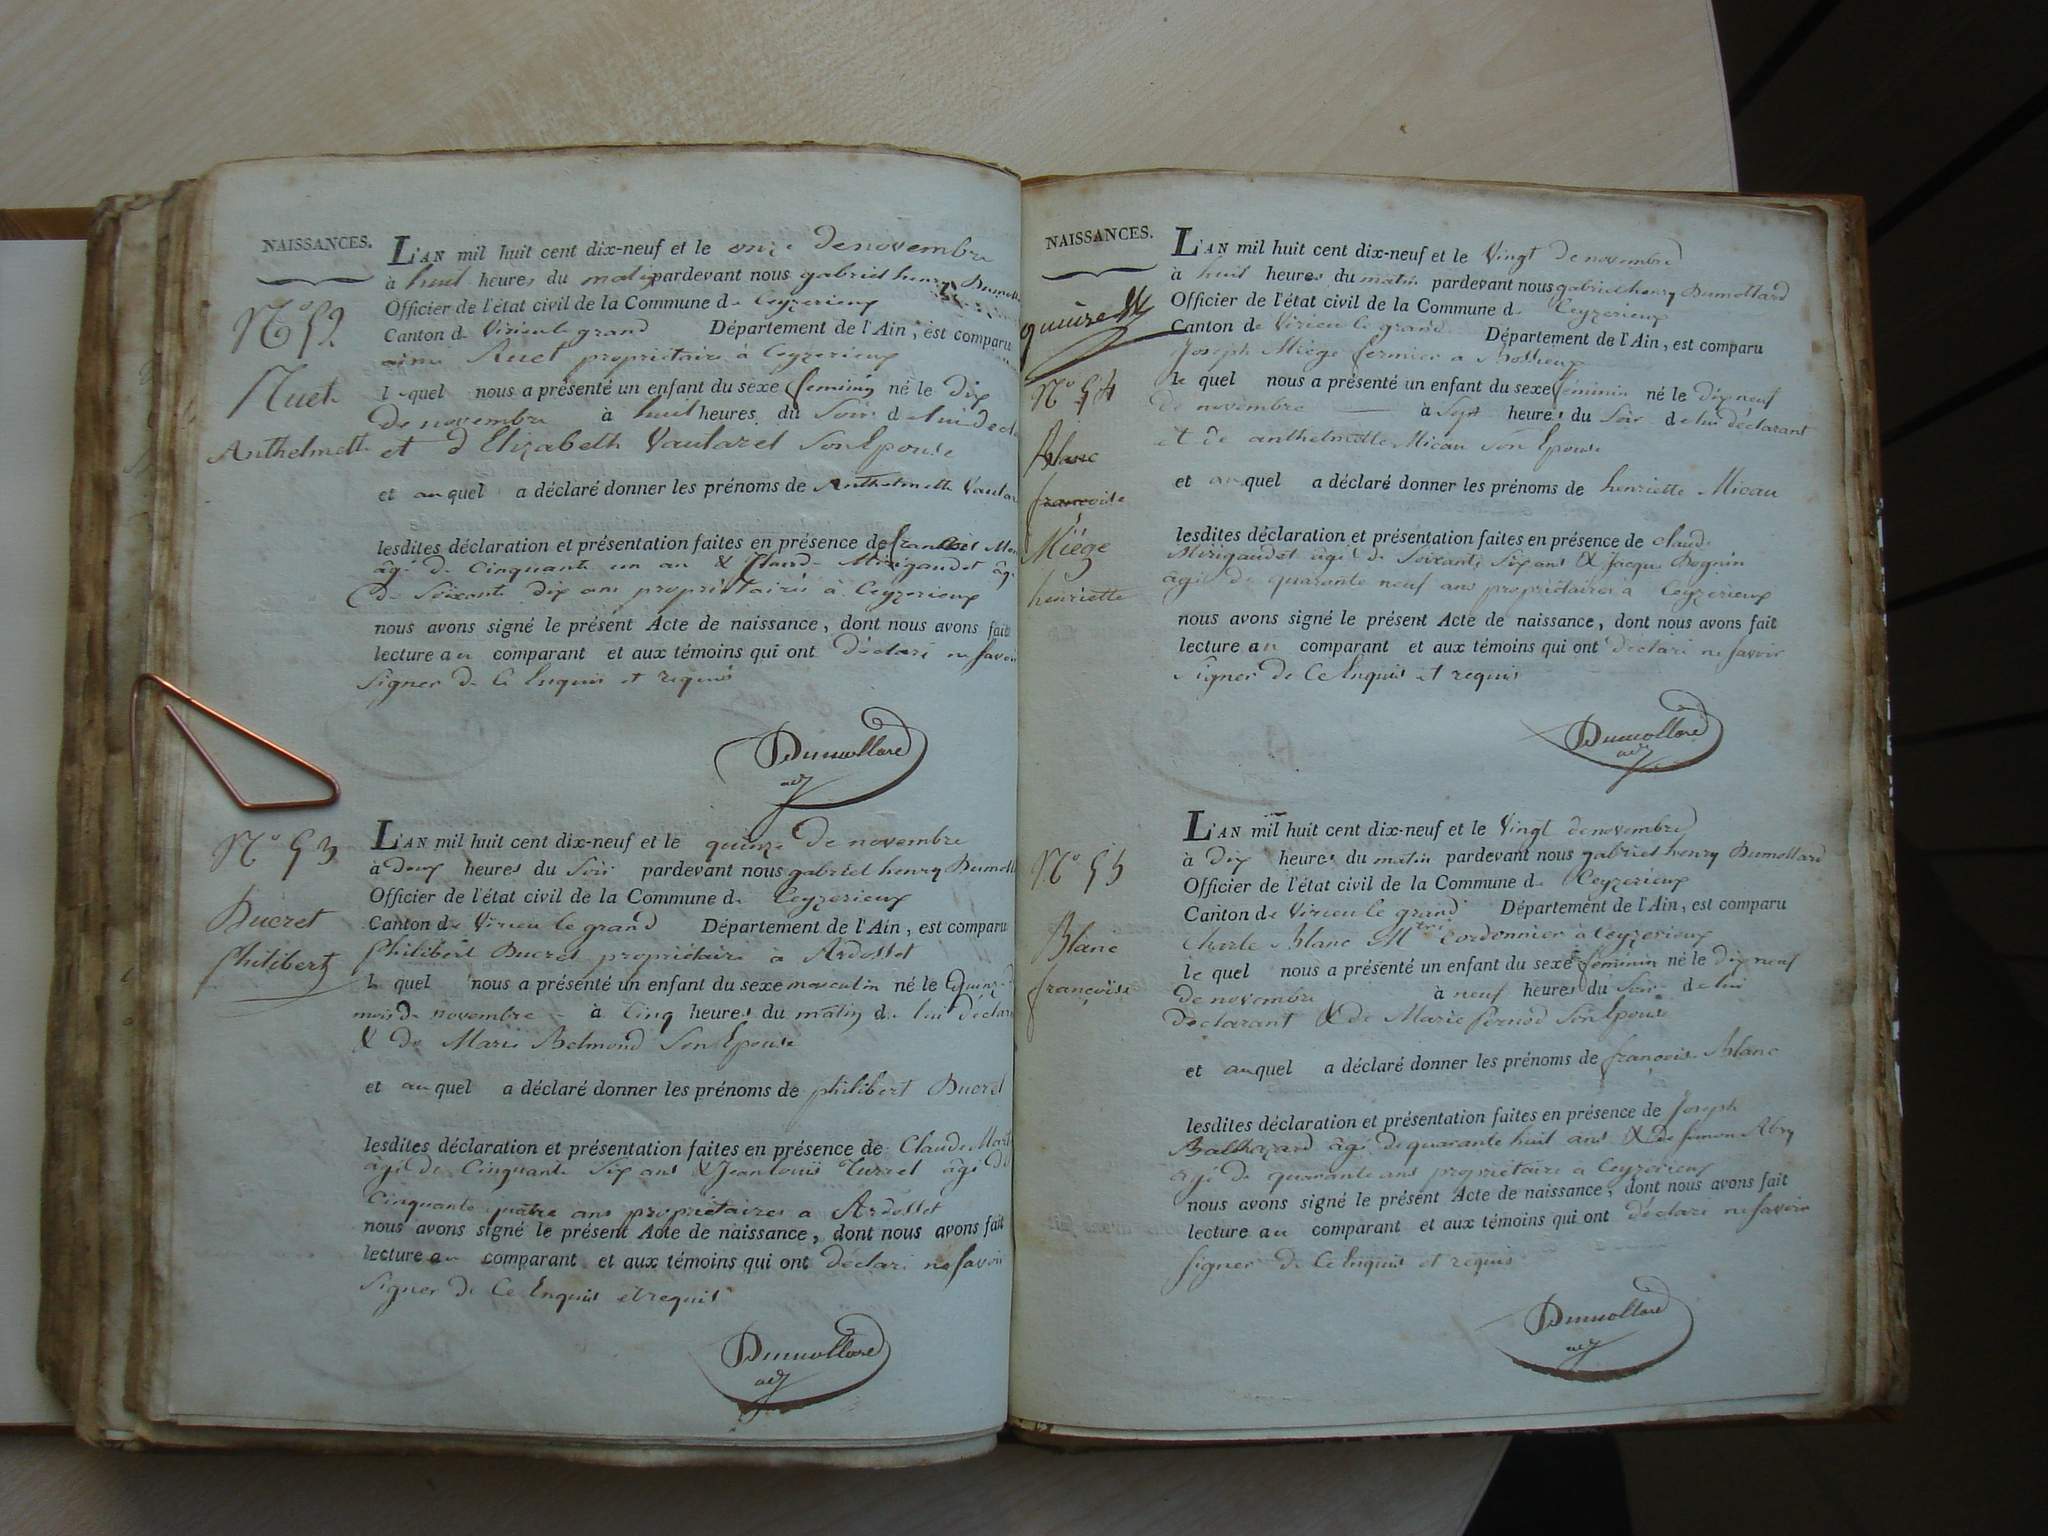 NAISSANCES.
N.º 52
Nuet
Anthelmette
L'AN mil huit cent dix-neuf et le onze de novembre
à huit heures du matin pardevant nous gabriel henry
Officier de l'état civil de la Commune de Ceyzerieux
Canton de Virieu le grand Département de l'Ain, est comparu
aimé Nuet propriétaire à Ceyzerieux
lequel nous a présenté un enfant du sexe feminin né le dix
de novembre à huit heures du Soir de lui
et d'Elizabeth Vaularet Son Epouse
et auquel a déclaré donner les prénoms de Anthelmette
lesdites déclaration et présentation faites en présence de
âgé de Cinquante un an & Mirigaudet
de Soixante dix ans propriétaires à Ceyzerieux
nous avons signé le présent Acte de naissance, dont nous avons fait
lecture au comparant et aux témoins qui ont déclaré ne savoir
Signer de Ce Enquis et requis
Dumollard
adj
N.º 53
Ducret
Philibert
L'AN mil huit cent dix-neuf et le quinze de novembre
à deux heures du Soir pardevant nous gabriel henry
Officier de l'état civil de la Commune de Ceyzerieux
Canton de Virieu le grand Département de l'Ain, est comparu
Philibert Ducret propriétaire à Ardosset
lequel nous a présenté un enfant du sexe masculin né le Quinze
mois de novembre - à Cinq heures du matin de lui
& de Marie Belmond Son Epouse
et auquel a déclaré donner les prénoms de philibert Ducret
lesdites déclaration et présentation faites en présence de Claude
âgé de Cinquante Six ans & Jean Louis Turret âgé de
Cinquante quatre ans propriétaires a Ardosset
nous avons signé le présent Acte de naissance, dont nous avons fait
lecture au comparant et aux témoins qui ont déclaré ne savoir
Signer de Ce Enquis et requis
Dumollard
adj
NAISSANCES.
N.º 54
Blanc
françoise
Miège
henriette
L'AN mil huit cent dix-neuf et le Vingt de novembre
à huit heures du matin pardevant nous gabriel henry Dumollard
Officier de l'état civil de la Commune de Ceyzerieux
Canton de Virieu le grand Département de l'Ain, est comparu
Joseph Miège fermier a
le quel nous a présenté un enfant du sexe féminin né le dix neuf
de novembre à Sept heures du Soir de lui déclarant
et de anthelmette Micau son Epouse
et auquel a déclaré donner les prénoms de henriette Micau
lesdites déclaration et présentation faites en présence de claude
Mirigaudet âgé de Soixante Six ans & Jacque Bognin
âgé de quarante neuf ans propriétaires a Ceyzerieux
nous avons signé le présent Acte de naissance, dont nous avons fait
lecture au comparant et aux témoins qui ont déclaré ne savoir
Signer de Ce Enquis et requis
Dumollard
adj
N.º 55
Blanc
françoise
L'AN mil huit cent dix-neuf et le Vingt de novembre
à dix heures du matin pardevant nous gabriel henry Dumollard
Officier de l'état civil de la Commune de Ceyzerieux
Canton de Virieu le grand Département de l'Ain, est comparu
Charle Blanc Mtre Cordonnier à Ceyzerieux
le quel nous a présenté un enfant du sexe féminin né le dix neuf
de novembre à neuf heures du Soir de lui
déclarant & de Marie fornod Son Epouse
et auquel a déclaré donner les prénoms de françoise Blanc
lesdites déclaration et présentation faites en présence de Joseph
Balthazard âgé de quarante huit ans & de Simon Abry
agé de quarante ans propriétaire a Ceyzerieux
nous avons signé le présent Acte de naissance, dont nous avons fait
lecture au comparant et aux témoins qui ont déclaré ne savoir
signer de Ce Enquis et requis
Dumollard
adj